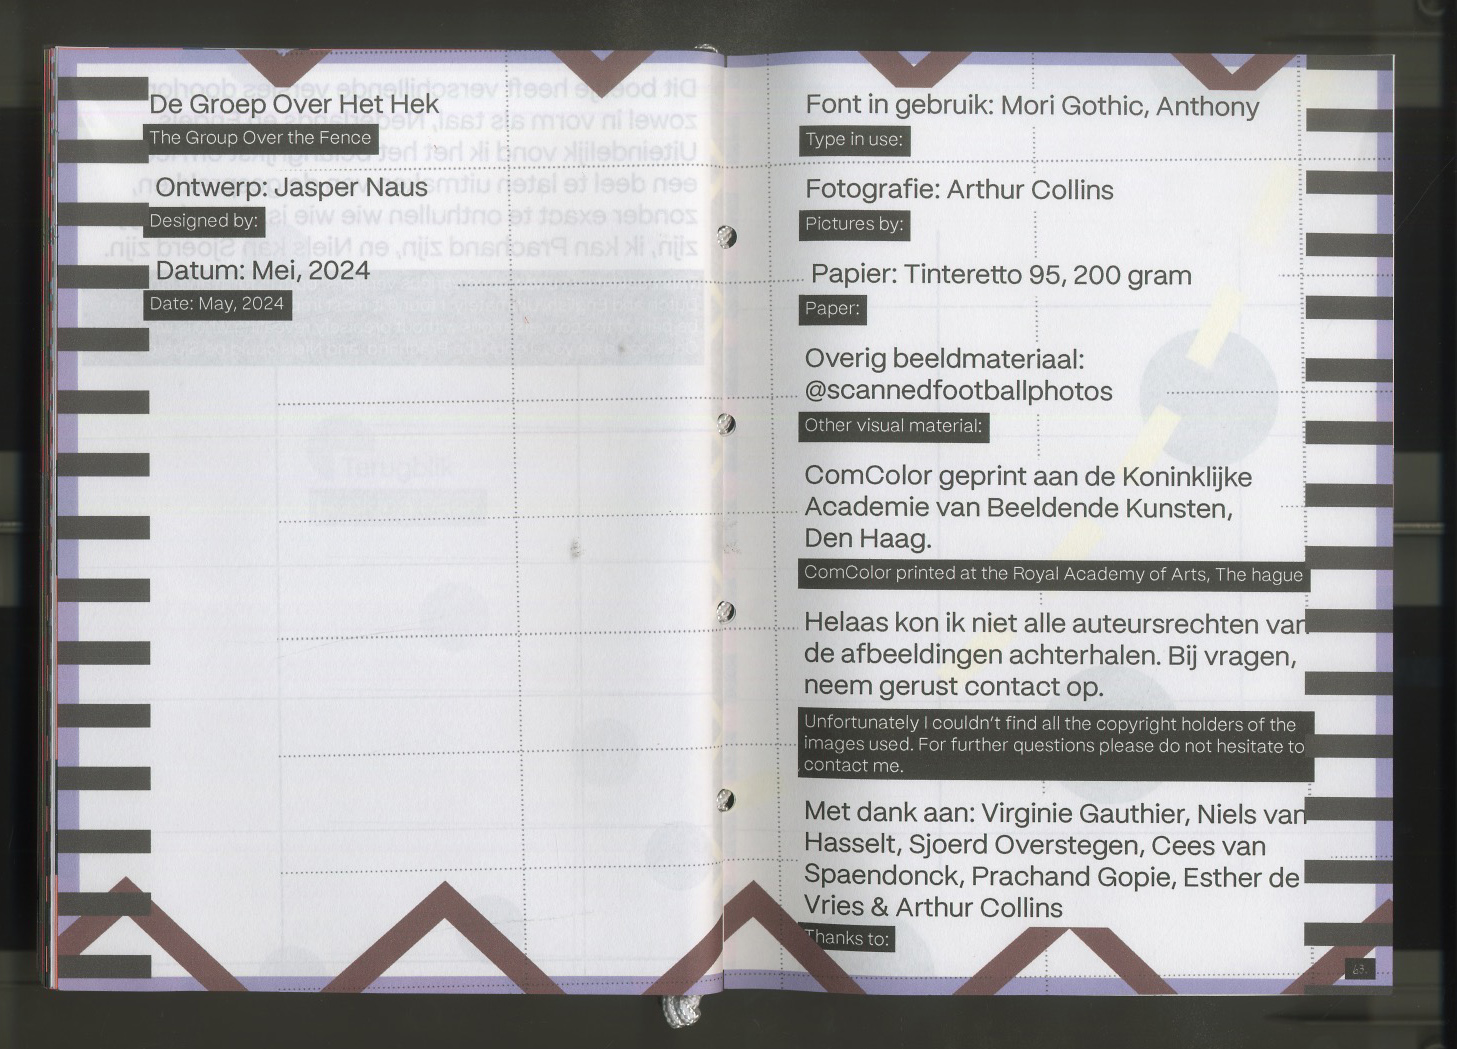 De Groep Over Het Hek
The Group Over the Fence
Ontwerp: Jasper Naus
Designed by:
Datum: Mei, 2024
Date: May, 2024
Terugblik
Font in gebruik: Mori Gothic, Anthony
Type in use:
Fotografie: Arthur Collins
Pictures by:
Papier: Tinteretto 95, 200 gram
Paper:
Overig beeldmateriaal:
@scannedfootballphotos
Other visual material:
ComColor geprint aan de Koninklijke
Academie van Beeldende Kunsten,
Den Haag.
ComColor printed at the Royal Academy of Arts, The hague
Helaas kon ik niet alle auteursrechten van
de afbeeldingen achterhalen. Bij vragen,
neem gerust contact op.
Unfortunately I couldn't find all the copyright holders of the
images used. For further questions please do not hesitate to
contact me.
Met dank aan: Virginie Gauthier, Niels van
Hasselt, Sjoerd Overstegen, Cees van
Spaendonck, Prachand Gopie, Esther de
Vries & Arthur Collins
Thanks to:
63.